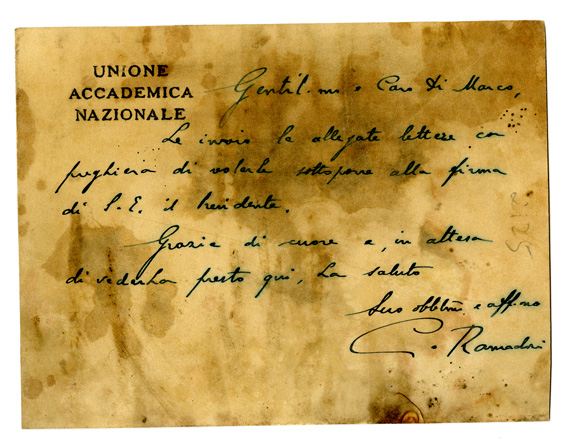 UNIONE
ACCADEMICA
NAZIONALE
Gentil.mo e Caro Di Marco,
Le invio le allegate lettere con
preghiera di volerle sottoporre alla firma
di S.E. il Presidente.
Grazie di cuore e, in attesa
di vederLa presto qui, La saluto
Suo obbl.mo e aff.mo
C. Ramadori